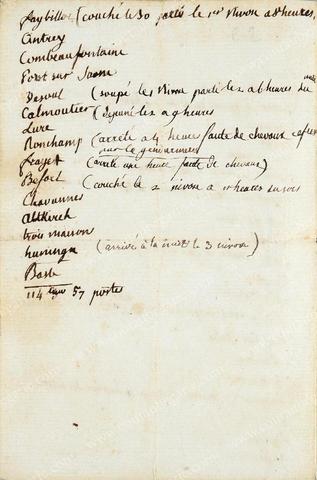 faybillot (couché le 30 parti le 1er Nivon a 8 heures,
Cintrey
Combeaufontaine
Port sur Saone
Vesoul (soupé le 1 Nivon partie les a 6 heures du
Calmoutier (dejeuné les a 9 heures
Lure
Ronchamp (arreté a 4 heure faute de chevaux
frayet (arreté une heure faute de chevaux)
Befort (couché le 2 nivon a heures du soir
Chavannes
altkirch
trois maison
huningu (arrivé à la nuit le 3 nivon)
Basle
114 lieu 57 poste